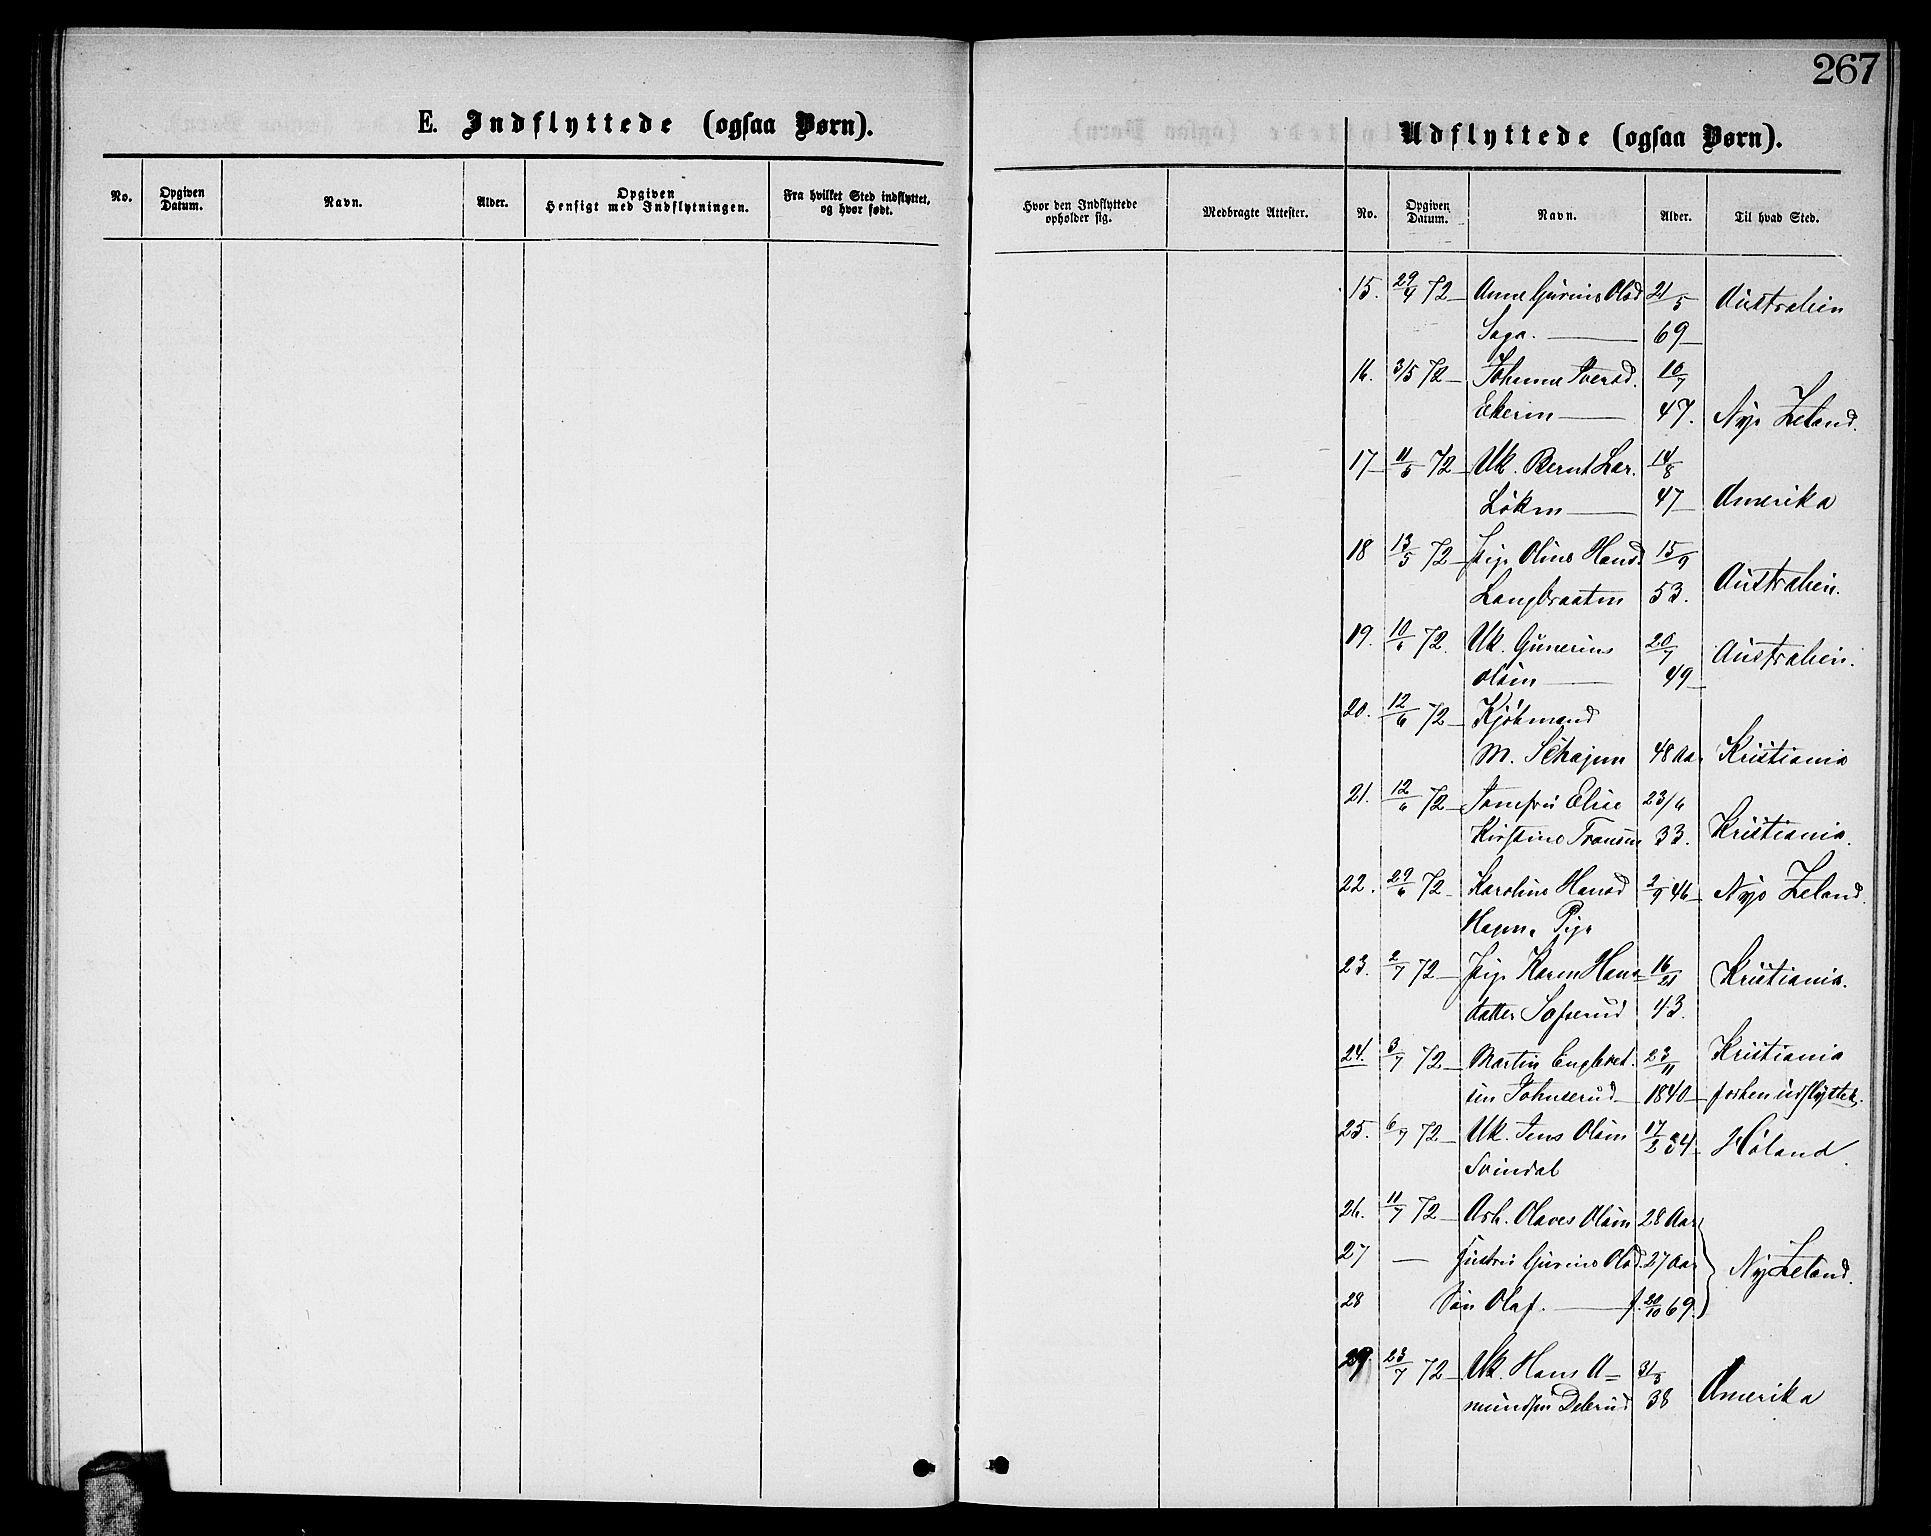 267
E. Indflyttede (ogsaa Børn).
No. Opgiven Datum. Navn. Alder. Opgiven Hensigt med Indflytningen. Fra hvilket Sted indflyttet, og hvor født.
Hvor den Indflyttede opholder sig. Medbragte Attester.
Udflyttede (ogsaa Børn).
No. Opgiven Datum. Navn. Alder. Til hvad Sted.
15. 29/4 72 Anne Gurine Olsd 21/5 Australien
Saga. 69
16. 3/5 72 Johanne Iversd. 10/7
Ekerm 47. Nye Zeland.
17 11/5 72 Uk. Bernt Lar. 14/8
Løken 47 Amerika
18 13/5 72 Pige Oline Hansd. 15/9
Langbraaten 53. Australien.
19. 10/6 72. Uk. Gunerius 20/7 Australien.
Olsen 49
20. 12/6 72 Kjøbmand
M. 48 Aar Kristiania
21. 12/6 72 Jomfru Elise 23/6
Kirstine 33. Kristiania.
22. 29/6 72 Karoline Hansd 2/9 46 Nye Zeland.
Hagen. Pige
23. 2/7 72 Pige Karen Hans= 16/21 Kristiania.
datter 43.
24. 3/7 72 Martin Engbret. 23/11 Kristiania
sen Johnserud 1840 forhen udflyttet.
25. 6/7 72 Uk. Jens Olsen 17/2 34 Høland.
Svindal
26. 11/7 72 Arb. Olaves Olsen 28 Aar
27 — Hustru Gurine Olsd. 27 Aar Ny Zeland.
28 Søn Olaf. f. 20/10 69.
29. 23/7 72 Uk. Hans A= 31/3
mundsen Delerud 38 Amerika